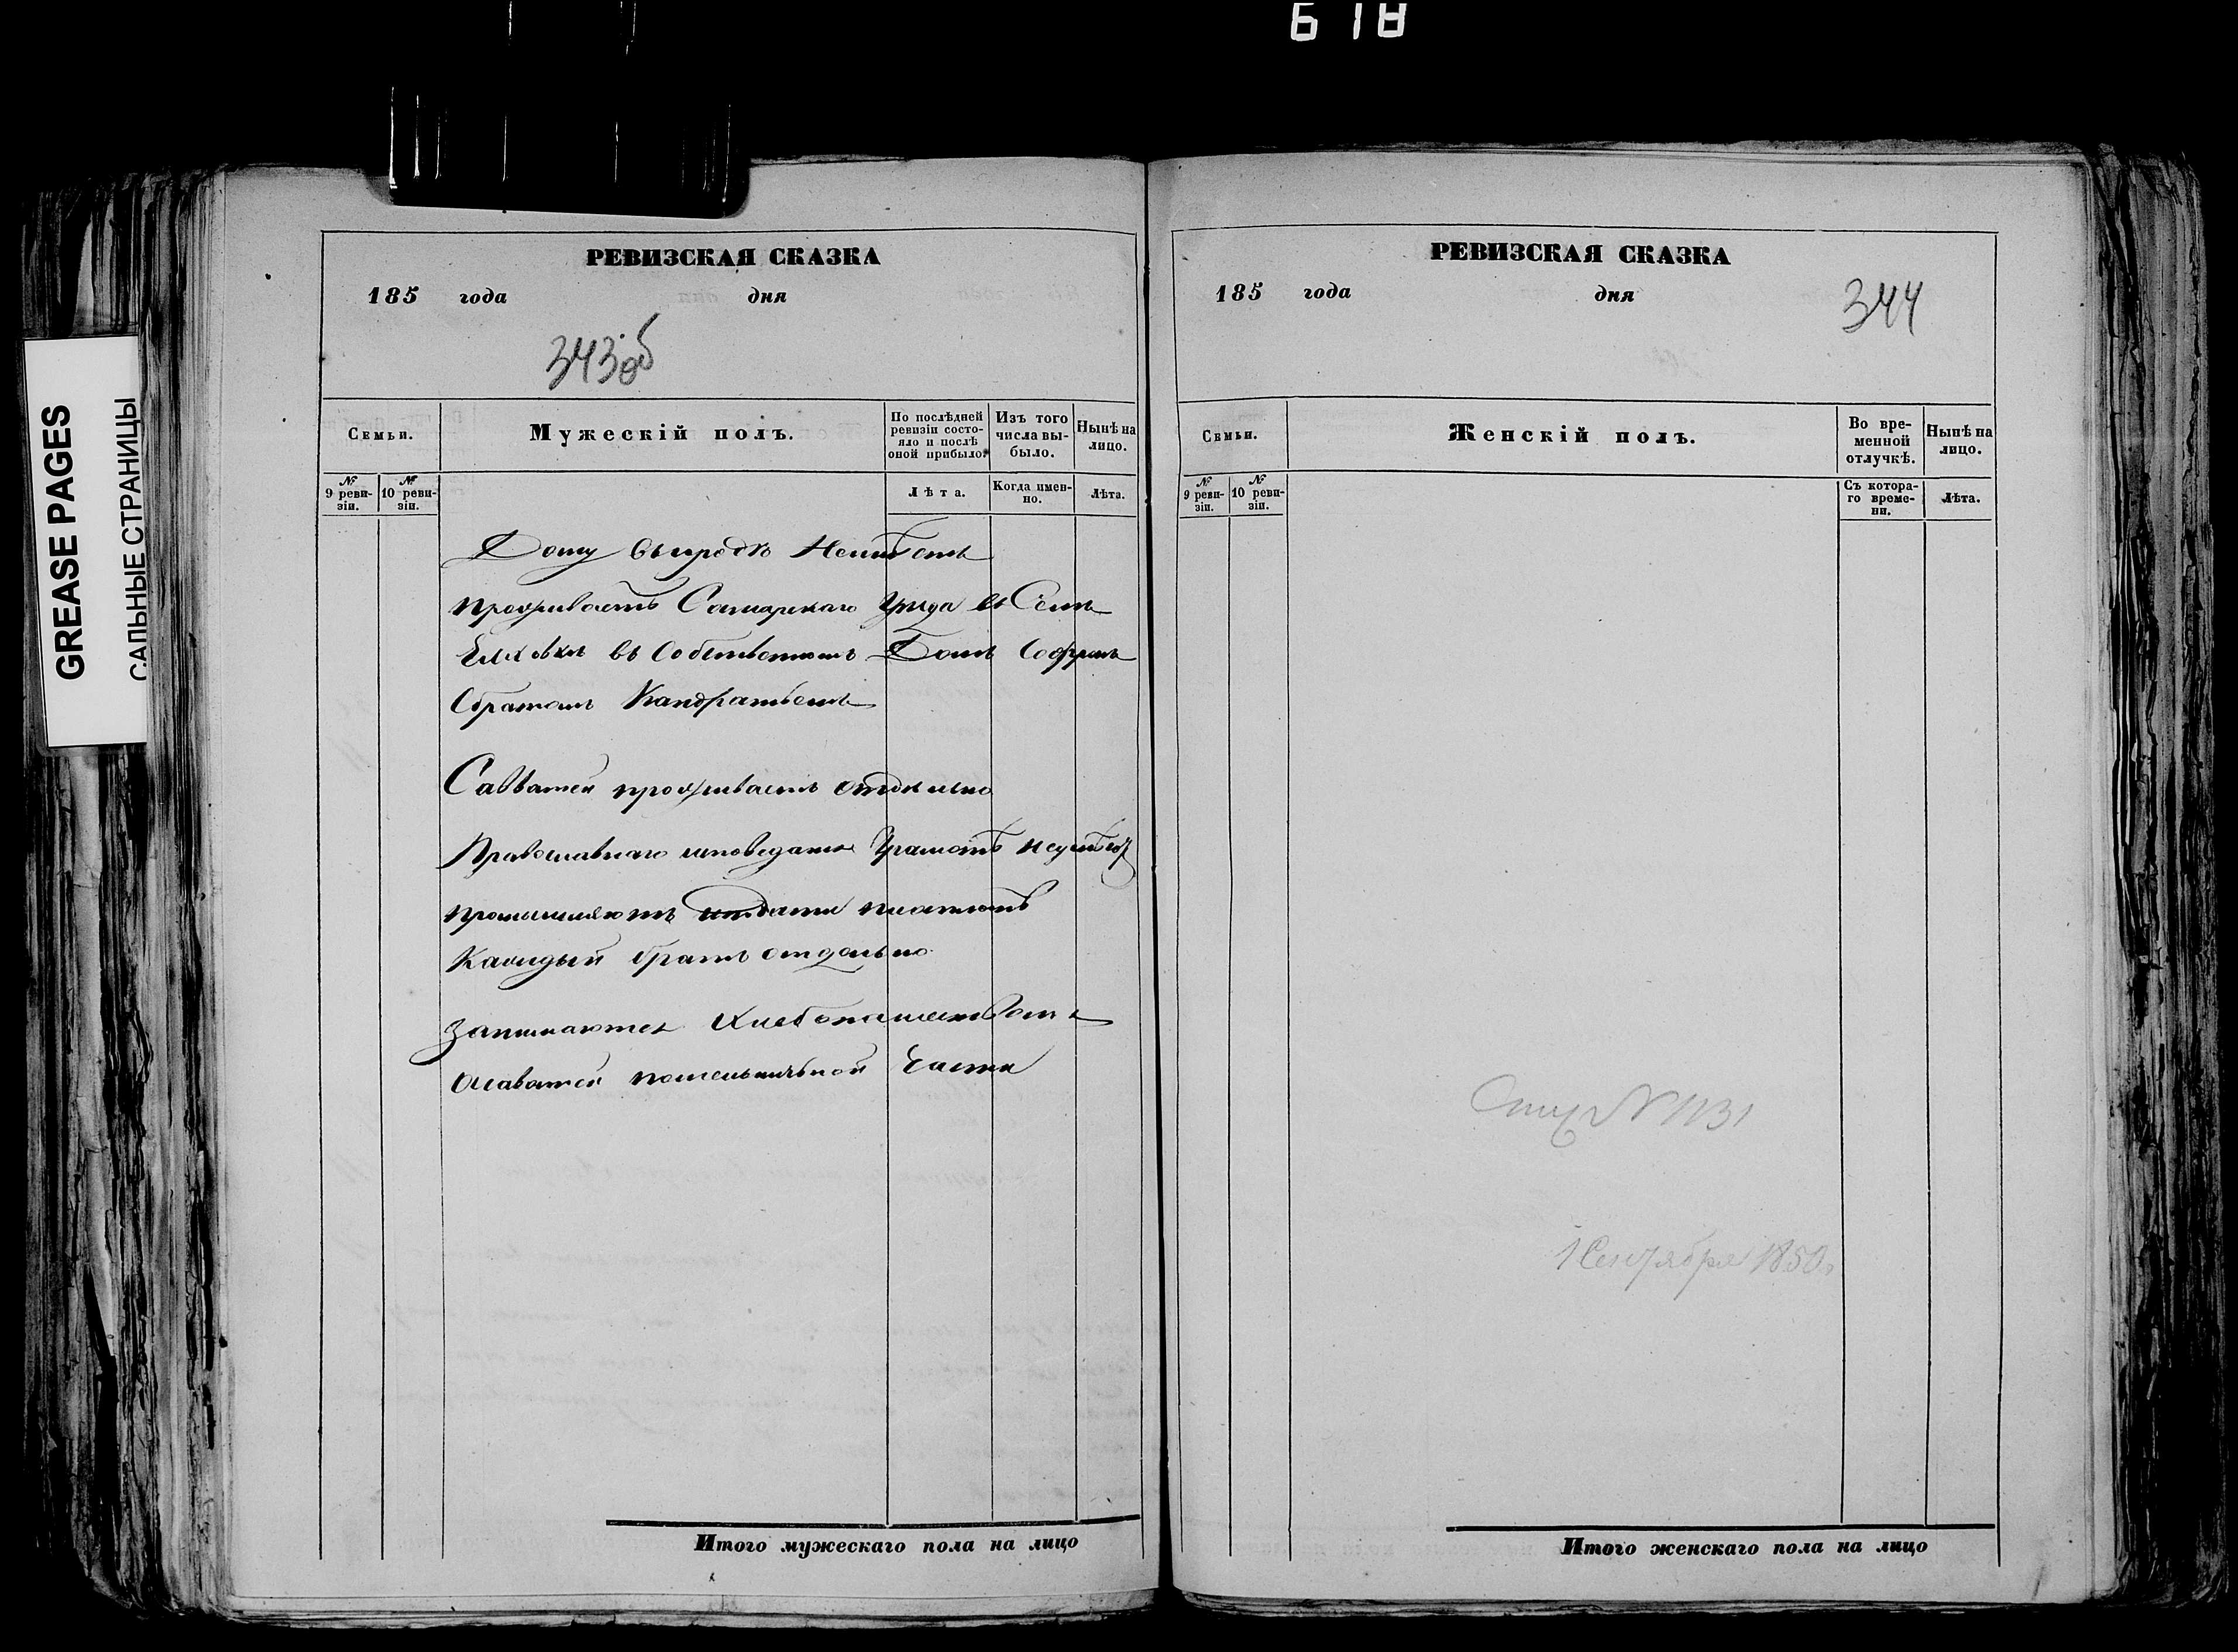 618
GREASE PAGES
САЛЬНЫЕ СТРАНИЦЫ
РЕВИЗСКАЯ СКАЗКА
185 года дня
343об
Семьи.
Мужескій полъ.
По послѣдней ревизіи состояло и послѣ оной прибыло.
Изъ того числа выбыло.
Нынѣ на лицо.
№ 9 ревизіи.
№ 10 ревизіи.
Лѣта.
Когда именно.
Лѣта.
Дому въ городѣ Неимѣетъ
проживаетъ Самарскаго Уезда въ Селѣ
Елховкѣ въ Собственномъ Домѣ Софронъ
Сбратомъ Кандратьемъ
Савватей проживаетъ отдельно
Православнаго исповедания Грамотѣ неумѣют
промышляютъ подати платютъ
Каждый братъ отдельно
Занимаются Хлебопашествомъ
Асаватей помельничьной Части
Итого мужескаго пола на лицо
РЕВИЗСКАЯ СКАЗКА
185 года дня
344
Семьи.
Женскій полъ.
Во временной отлучкѣ.
Нынѣ на лицо.
№ 9 ревизіи.
№ 10 ревизіи.
Съ котораго времени.
Лѣта.
№ 1131
1 Сентября 1850
Итого женскаго пола на лицо